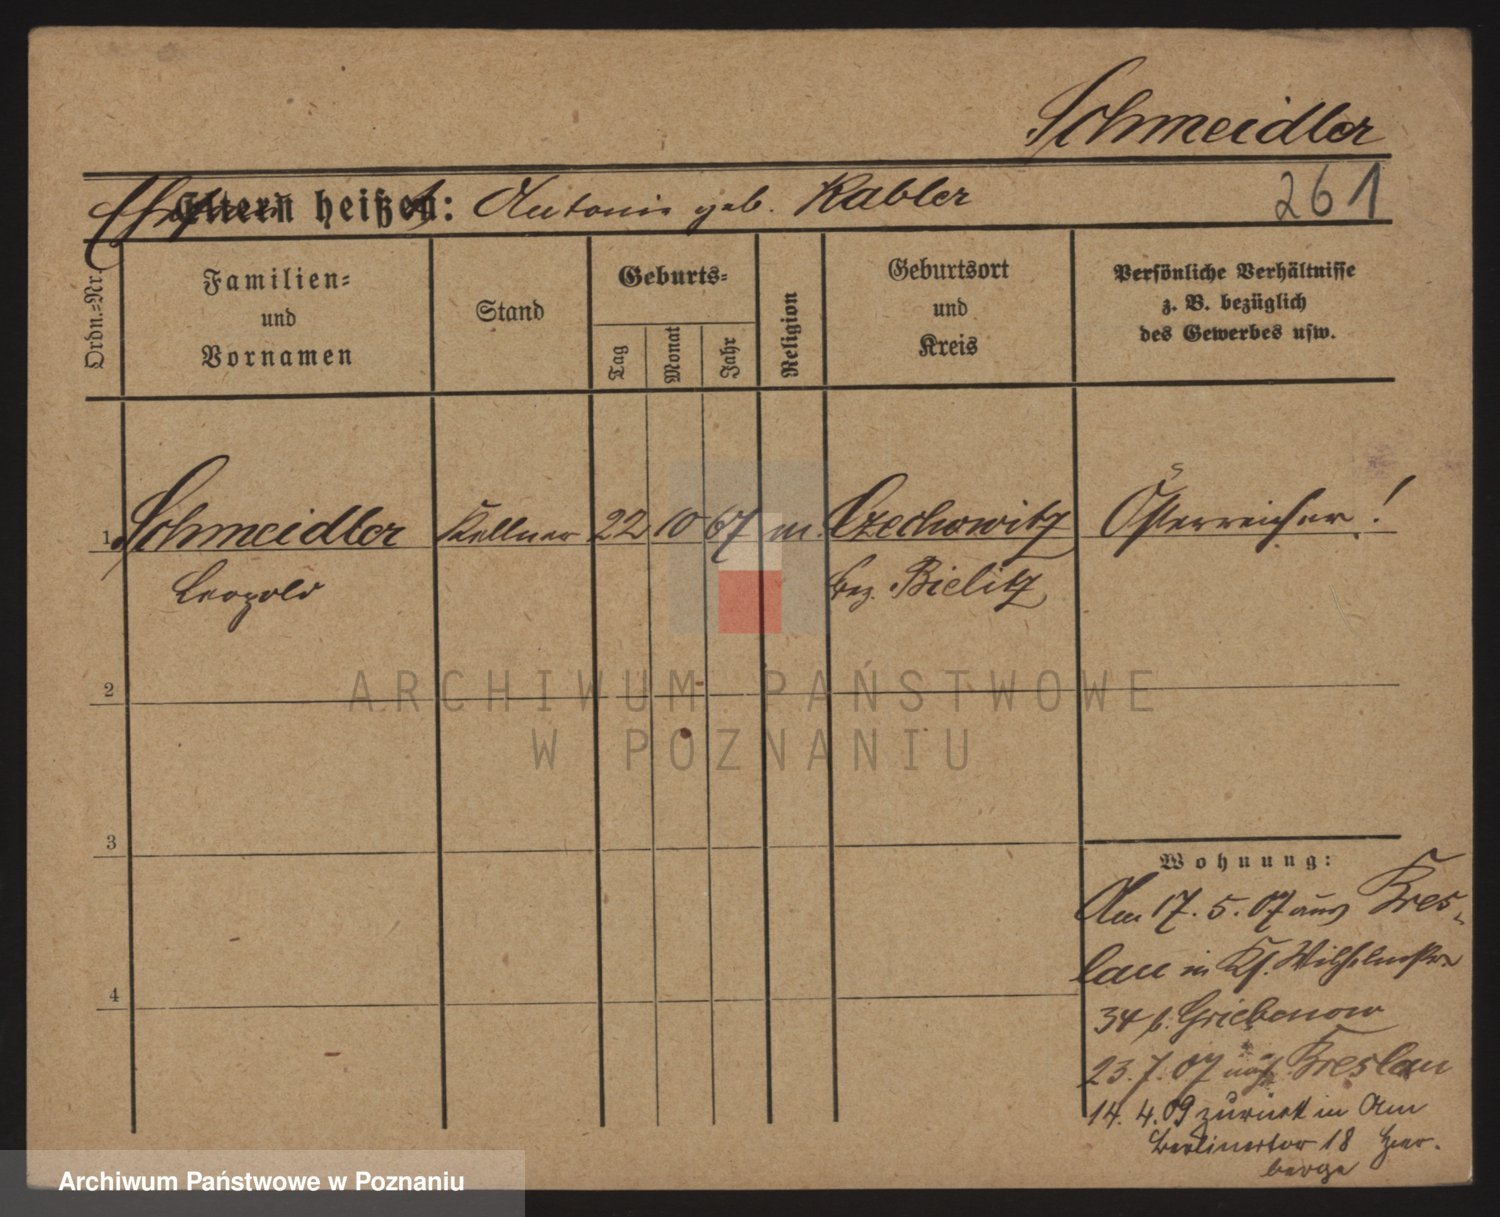 Schmeidler
Eltern heißen: Antonie geb. Kabler
261
Ordn.-Nr.
Familien-
und
Vornamen
Stand
Geburts-
Tag
Monat
Jahr
Religion
Geburtsort
und
Kreis
Persönliche Verhältnisse
z. B. bezüglich
des Gewerbes usw.
1 Schmeidler Kellner 22 10 67 m. Czechowitz Österreicher!
Leopold bez. Bielitz
2
ARCHIWUM PAŃSTWOWE
W POZNANIU
3
Wohnung:
Am 17. 5. 07 aus Bres-
lau in Ks. Wilhelmstr
34 b. Griebenow
4
23. 7. 07 nach Breslau
14. 4. 09 zurück in Am
Berlinertor 18 Her-
berge
Archiwum Państwowe w Poznaniu